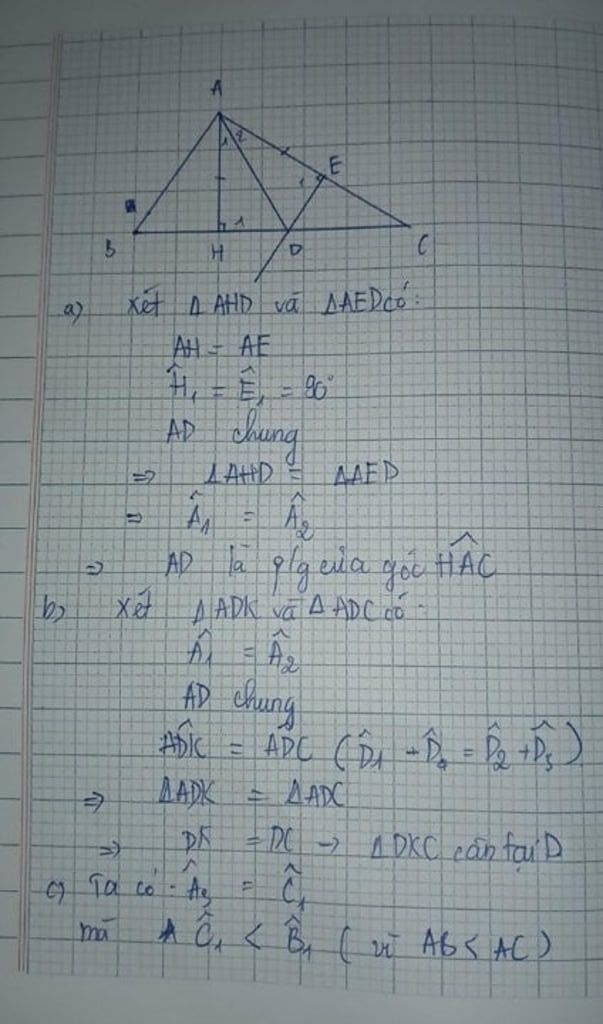 A
1 2
E
1
1
B H D C
a) Xét ΔAHD và ΔAED có:
AH = AE
Ĥ₁ = Ê₁ = 90°
AD chung
⇒ ΔAHD = ΔAED
⇒ Â₁ = Â₂
⇒ AD là p/g của góc HÂC
b) Xét ΔADK và ΔADC có:
Â₁ = Â₂
AD chung
ADK̂ = AD̂C (D̂₁ + D̂₄ = D̂₂ + D̂₃)
⇒ ΔADK = ΔADC
⇒ DK = DC → ΔDKC cân tại D
c) Ta có: Â₃ = Ĉ₁
mà Ĉ₁ < B̂₁ (vì AB < AC)